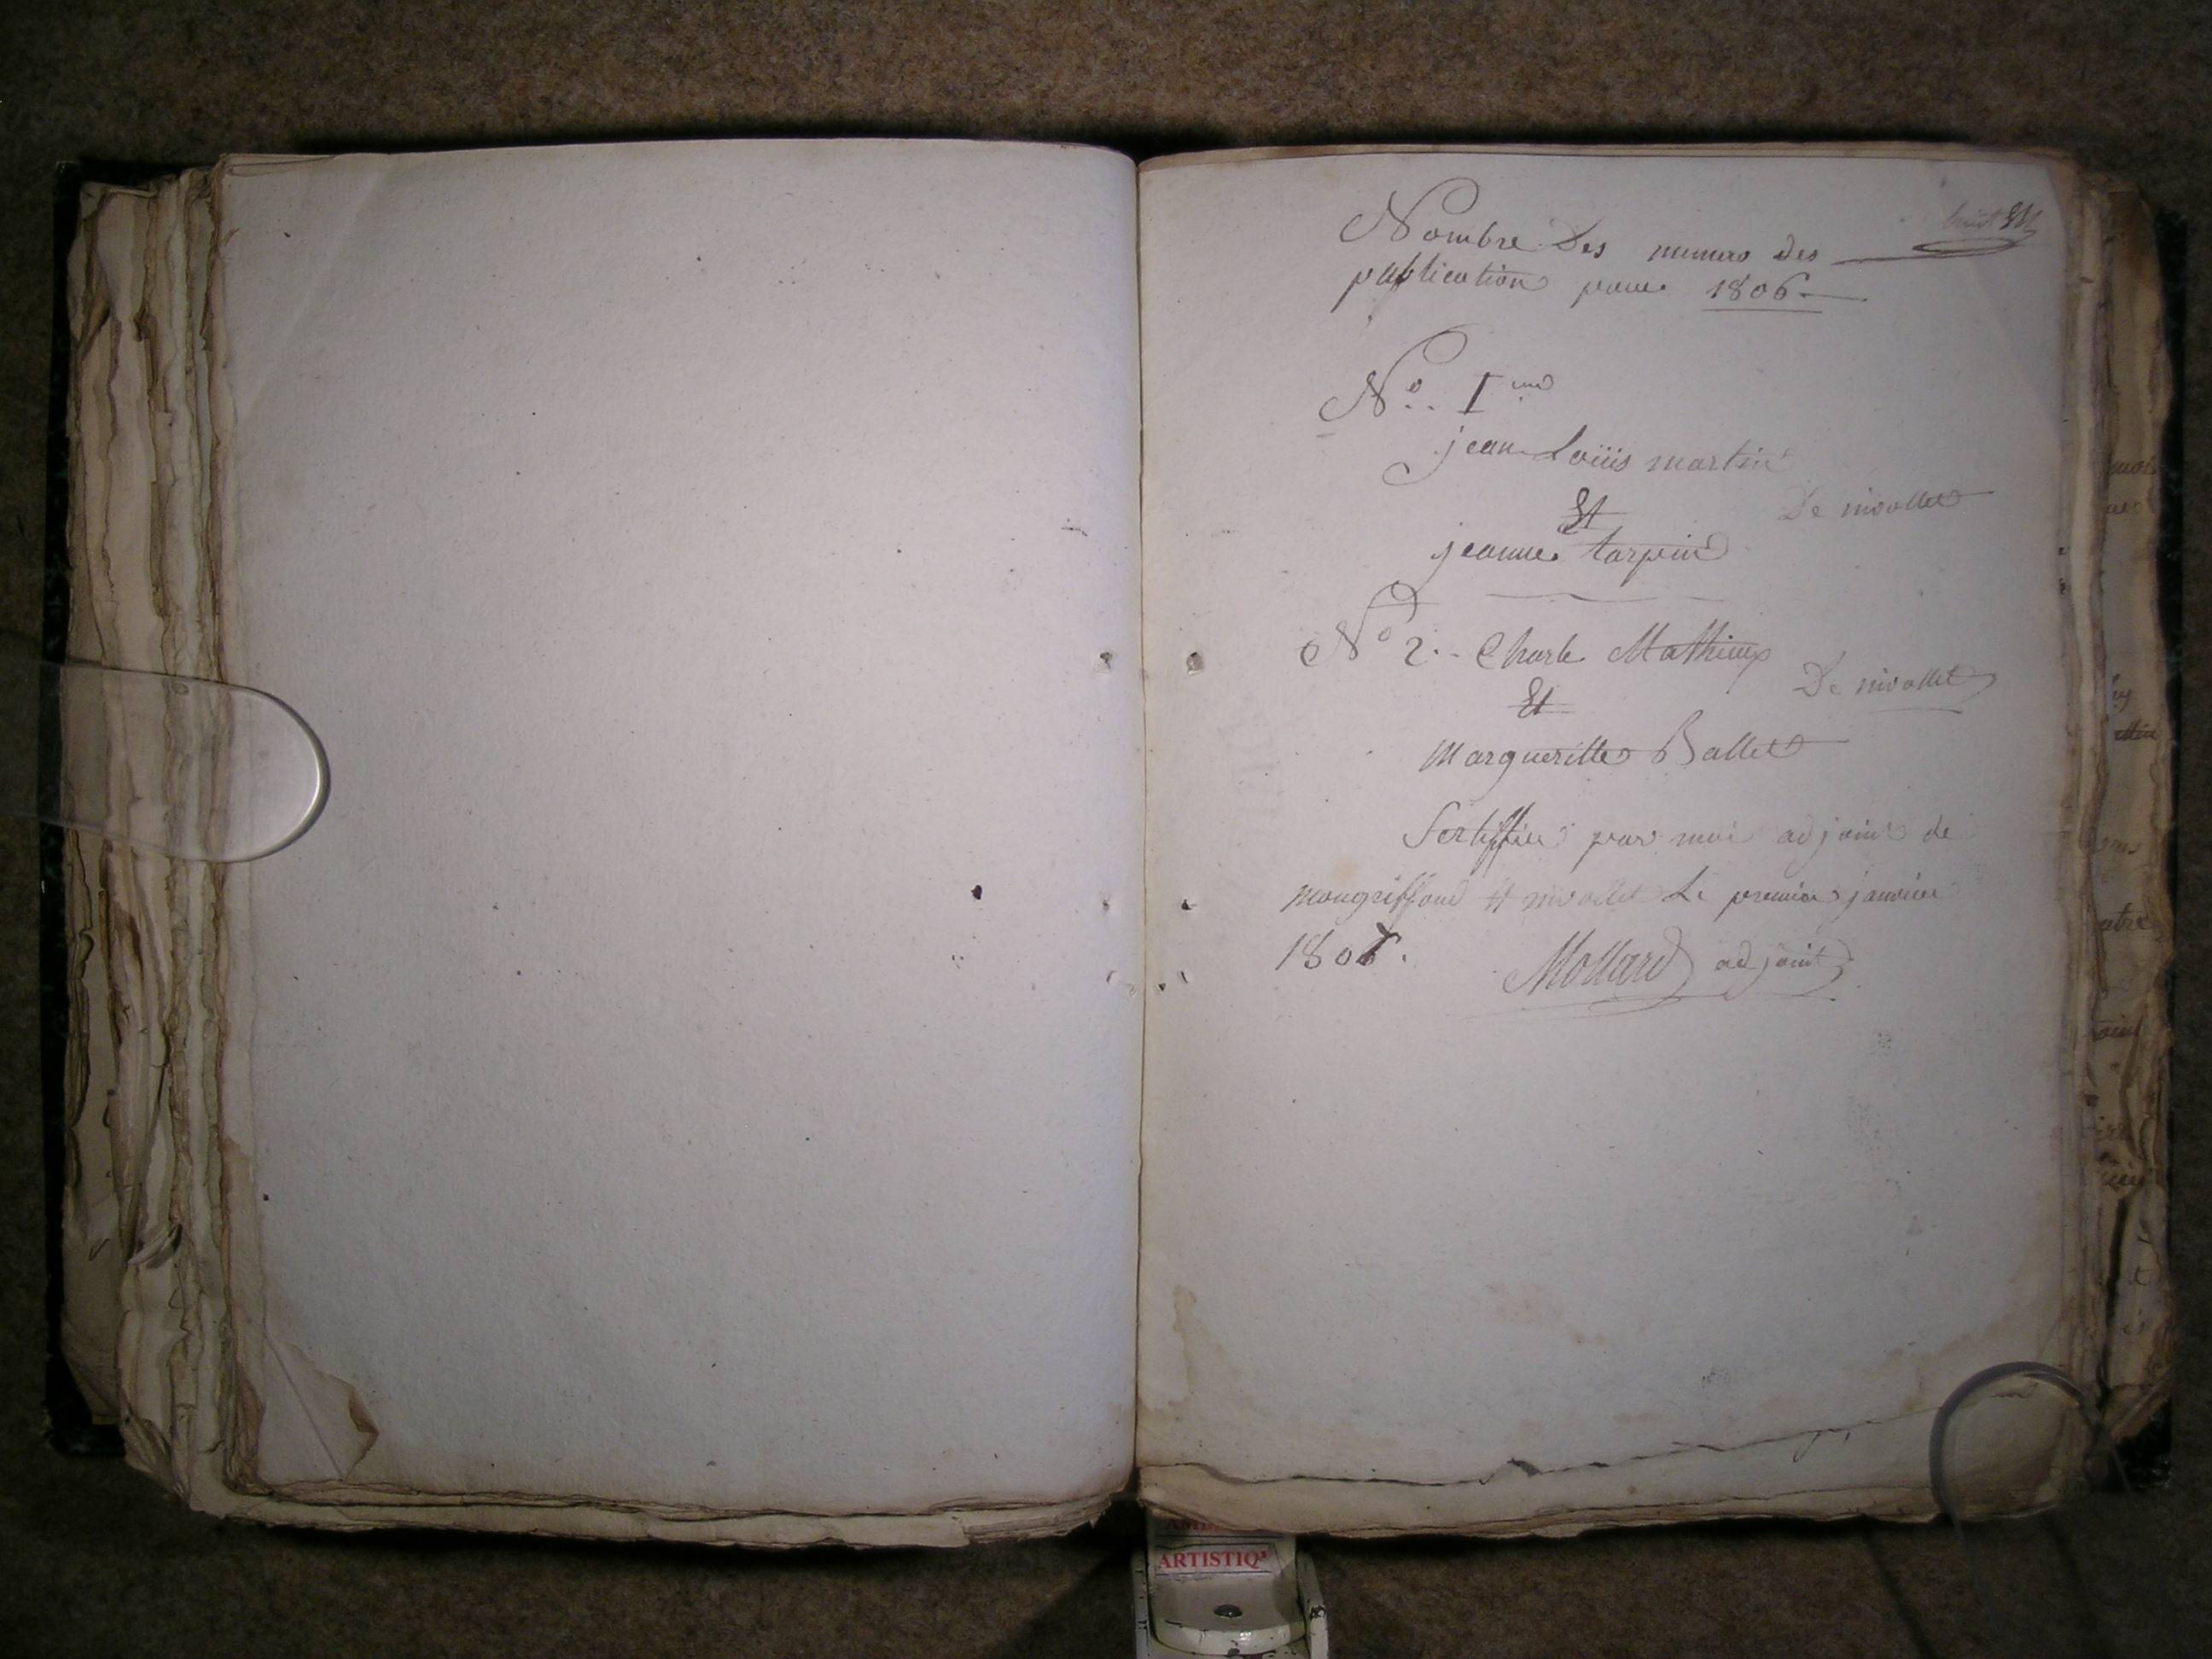 huit
Nombre Des numero des
publication pour 1806
N.º 1
jean Loüis martin
Et
De nivollet
jeanne tarpin
Nº 2. Charle Mathieu
De nivollet
Et
Margueritte Ballet
Sertiffiee par moi adjoint de
mongriffond Et nivollet Le premier janvier
1806.
Mollard adjoint
ARTISTIQ